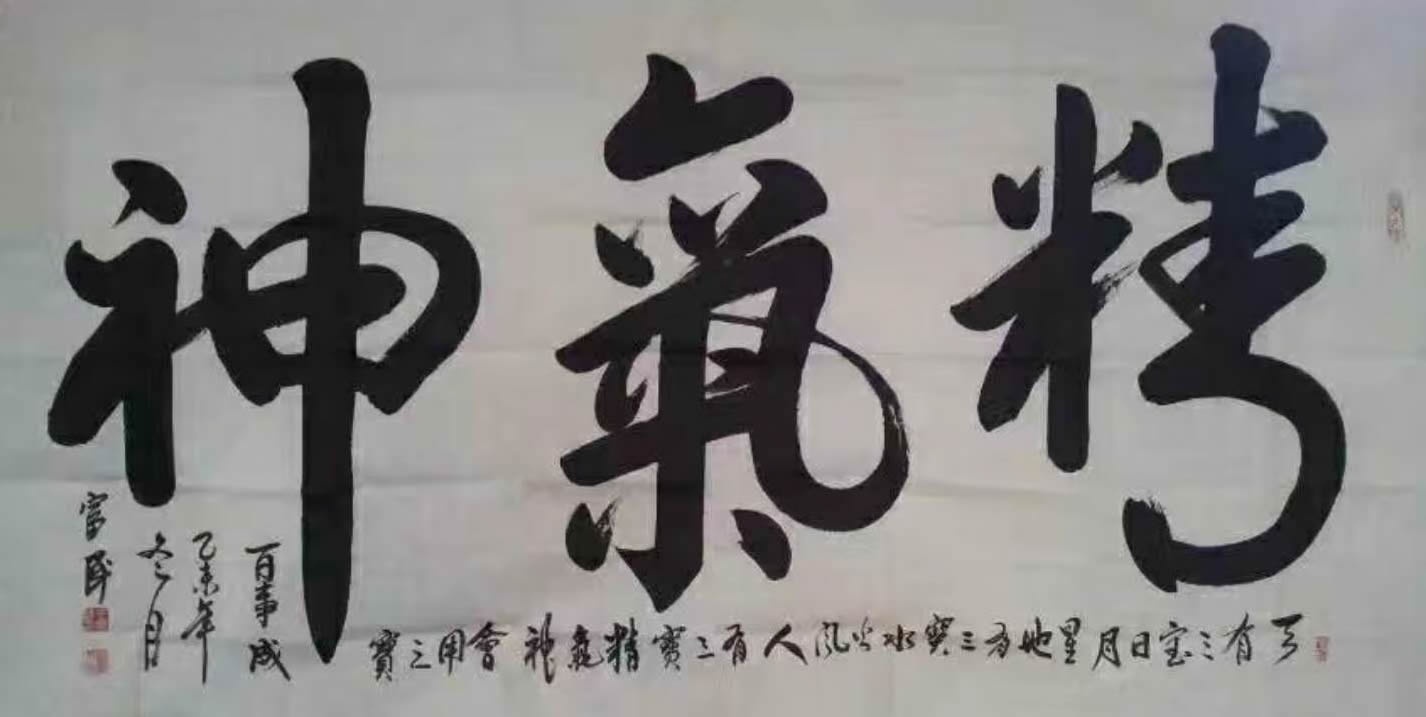 精氣神
天有三宝日月星地有三寳水火风人有三寳精氣神會用三寳
百事成
乙未年
冬月
富民